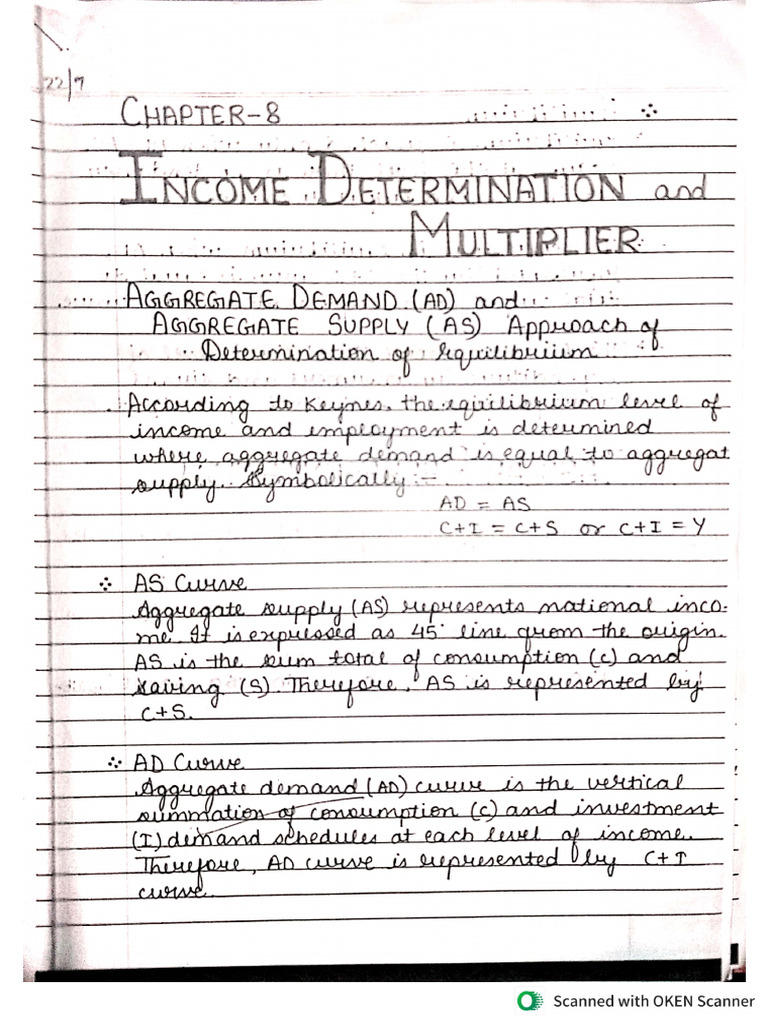 22/7
CHAPTER-8
INCOME DETERMINATION and
MULTIPLIER
AGGREGATE DEMAND (AD) and
AGGREGATE SUPPLY (AS) Approach of
Determination of equilibrium
According to Keynes, the equilibrium level of
income and employment is determined
where aggregate demand is equal to aggregat
supply. Symbolically :-
AD = AS
C+I = C+S or C+I = Y
∴ AS Curve
Aggregate supply (AS) represents national inco-
me. It is expressed as 45° line from the origin.
AS is the sum total of consumption (C) and
saving (S). Therefore, AS is represented by
C+S.
∴ AD Curve
Aggregate demand (AD) curve is the vertical
summation of consumption (C) and investment
(I) demand schedules at each level of income.
Therefore, AD curve is represented by C+I
curve.
Scanned with OKEN Scanner